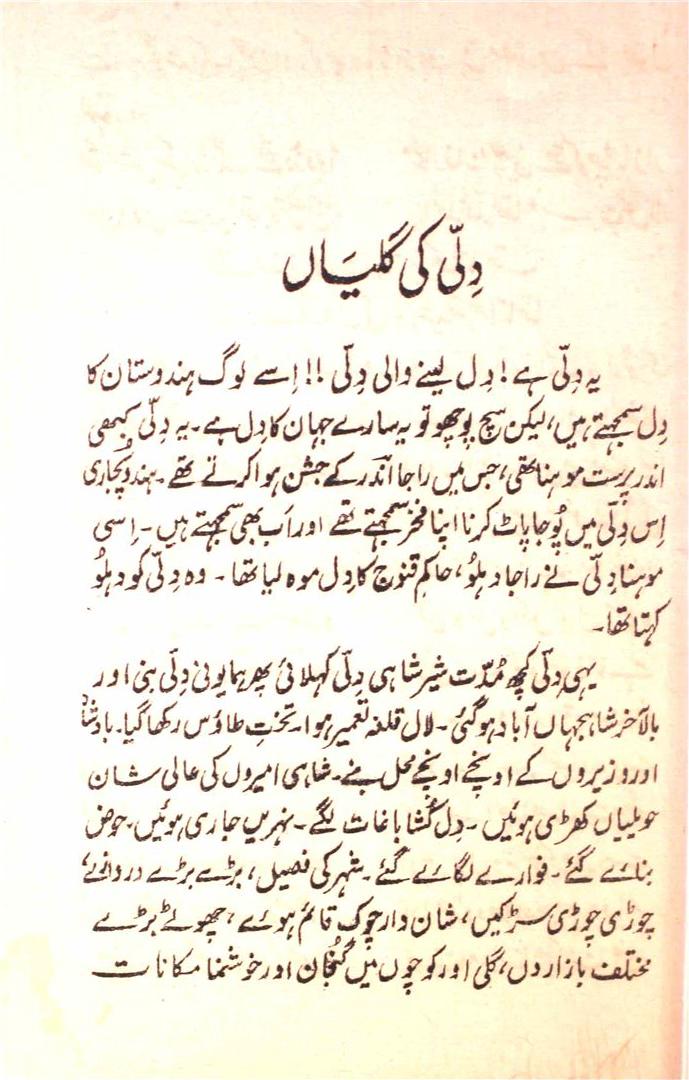 دِلّی کی گلیَاں
یہ دِلّی ہے! دِل لینے والی دِلّی!! اِسے لوگ ہندوستان کا
دِل سمجھتے ہیں، لیکن سچ پوچھو تو یہ سارے جہان کا دِل ہے۔ یہ دِلّی کبھی
اندر پرست موہنا تھی، جس میں راجا اَندر کے جشن ہوا کرتے تھے۔ ہندو پُجاری
اِس دِلّی میں پُوجا پاٹ کرنا اپنا فخر سمجھتے تھے اور اَب بھی سمجھتے ہیں۔ اِسی
موہنا دِلّی نے راجا دہلُو، حاکمِ قنوج کا دِل موہ لیا تھا۔ وہ دِلّی کو دہلُو
کہتا تھا۔
یہی دِلّی کچھ مُدّت شیر شاہی دِلّی کہلائی پھر ہمایونی دِلّی بنی اور
بالآخر شاہجہاں آباد ہو گئی۔ لال قلعہ تعمیر ہوا۔ تختِ طاؤس رکھا گیا۔ بادشاہ
اور وزیروں کے اونچے اونچے محل بنے۔ شاہی امیروں کی عالی شان
حویلیاں کھڑی ہوئیں۔ دِل کُشا باغات لگے۔ نہریں جاری ہوئیں۔ حوض
بنائے گئے۔ فوارے لگائے گئے۔ شہر کی فصیل، بڑے بڑے دروازے،
چوڑی چوڑی سڑکیں، شان دار چوک قائم ہوئے، چھوٹے بڑے
مختلف بازاروں، گلی اور کوچوں میں گُنجان اور خوشنما مکانات